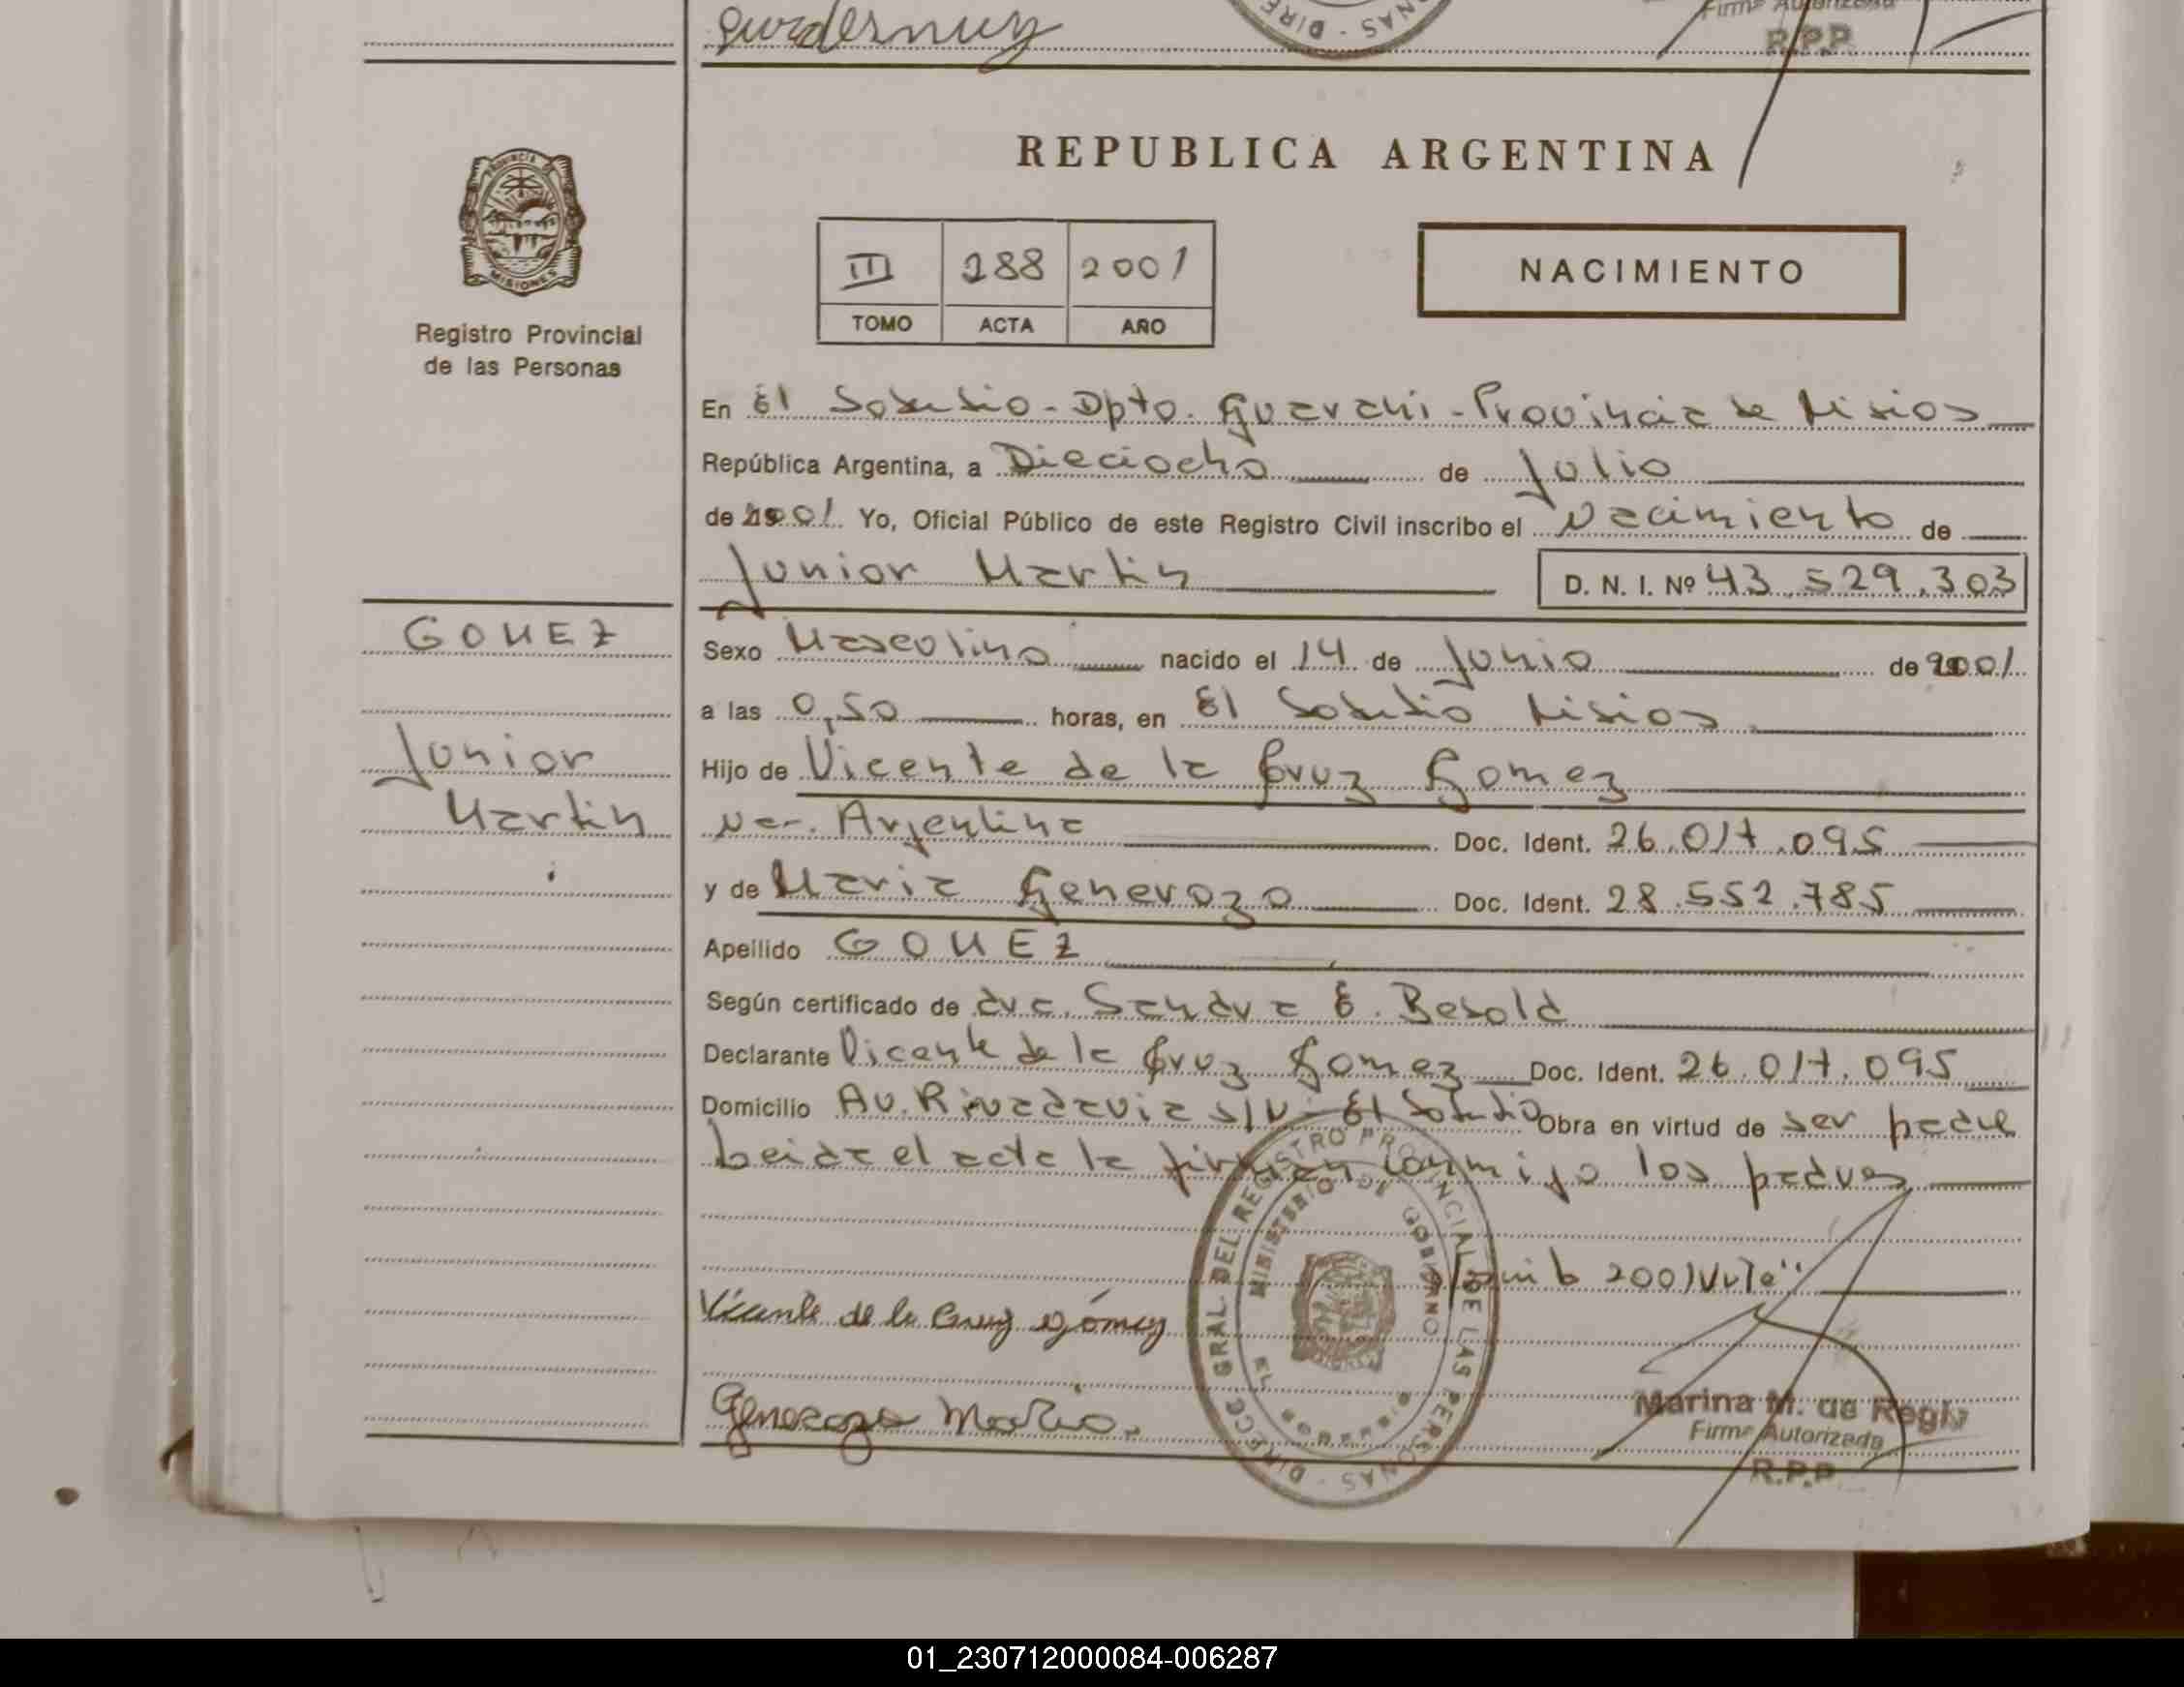 R.P.P.
PROVINCIA DE
MISIONES
Registro Provincial
de las Personas
REPUBLICA ARGENTINA
III 288 2001
TOMO ACTA AÑO
NACIMIENTO
En El Soberbio - Dpto. Guarani - Provincia de Misiones
República Argentina, a Dieciocho de Julio
de 2001 Yo, Oficial Público de este Registro Civil inscribo el Nacimiento de
Junior Martin D. N. I. Nº 43.529.303
GOMEZ
Junior
Martin
Sexo Masculino nacido el 14 de Junio de 2001
a las 0,50 horas, en El Soberbio Misiones
Hijo de Vicente de la Cruz Gomez
Nac. Argentina Doc. Ident. 26.017.095
y de Maria Generozo Doc. Ident. 28.552.785
Apellido GOMEZ
Según certificado de dra. Sandra E. Besold
Declarante Vicente de la Cruz Gomez Doc. Ident. 26.017.095
Domicilio Av. Rivadavia s/N - El Soberbio Obra en virtud de ser padre
Leida el acta la firman conmigo los padres
2001 Vale"
Vicente de la Cruz gómez
Generozo Maria.
DIRECC GRAL. DEL REGISTRO PROVINCIAL DE LAS PERSONAS
MINISTERIO DE GOBIERNO
Marina M. de Regly
Firma Autorizada
R.P.P
01_230712000084-006287